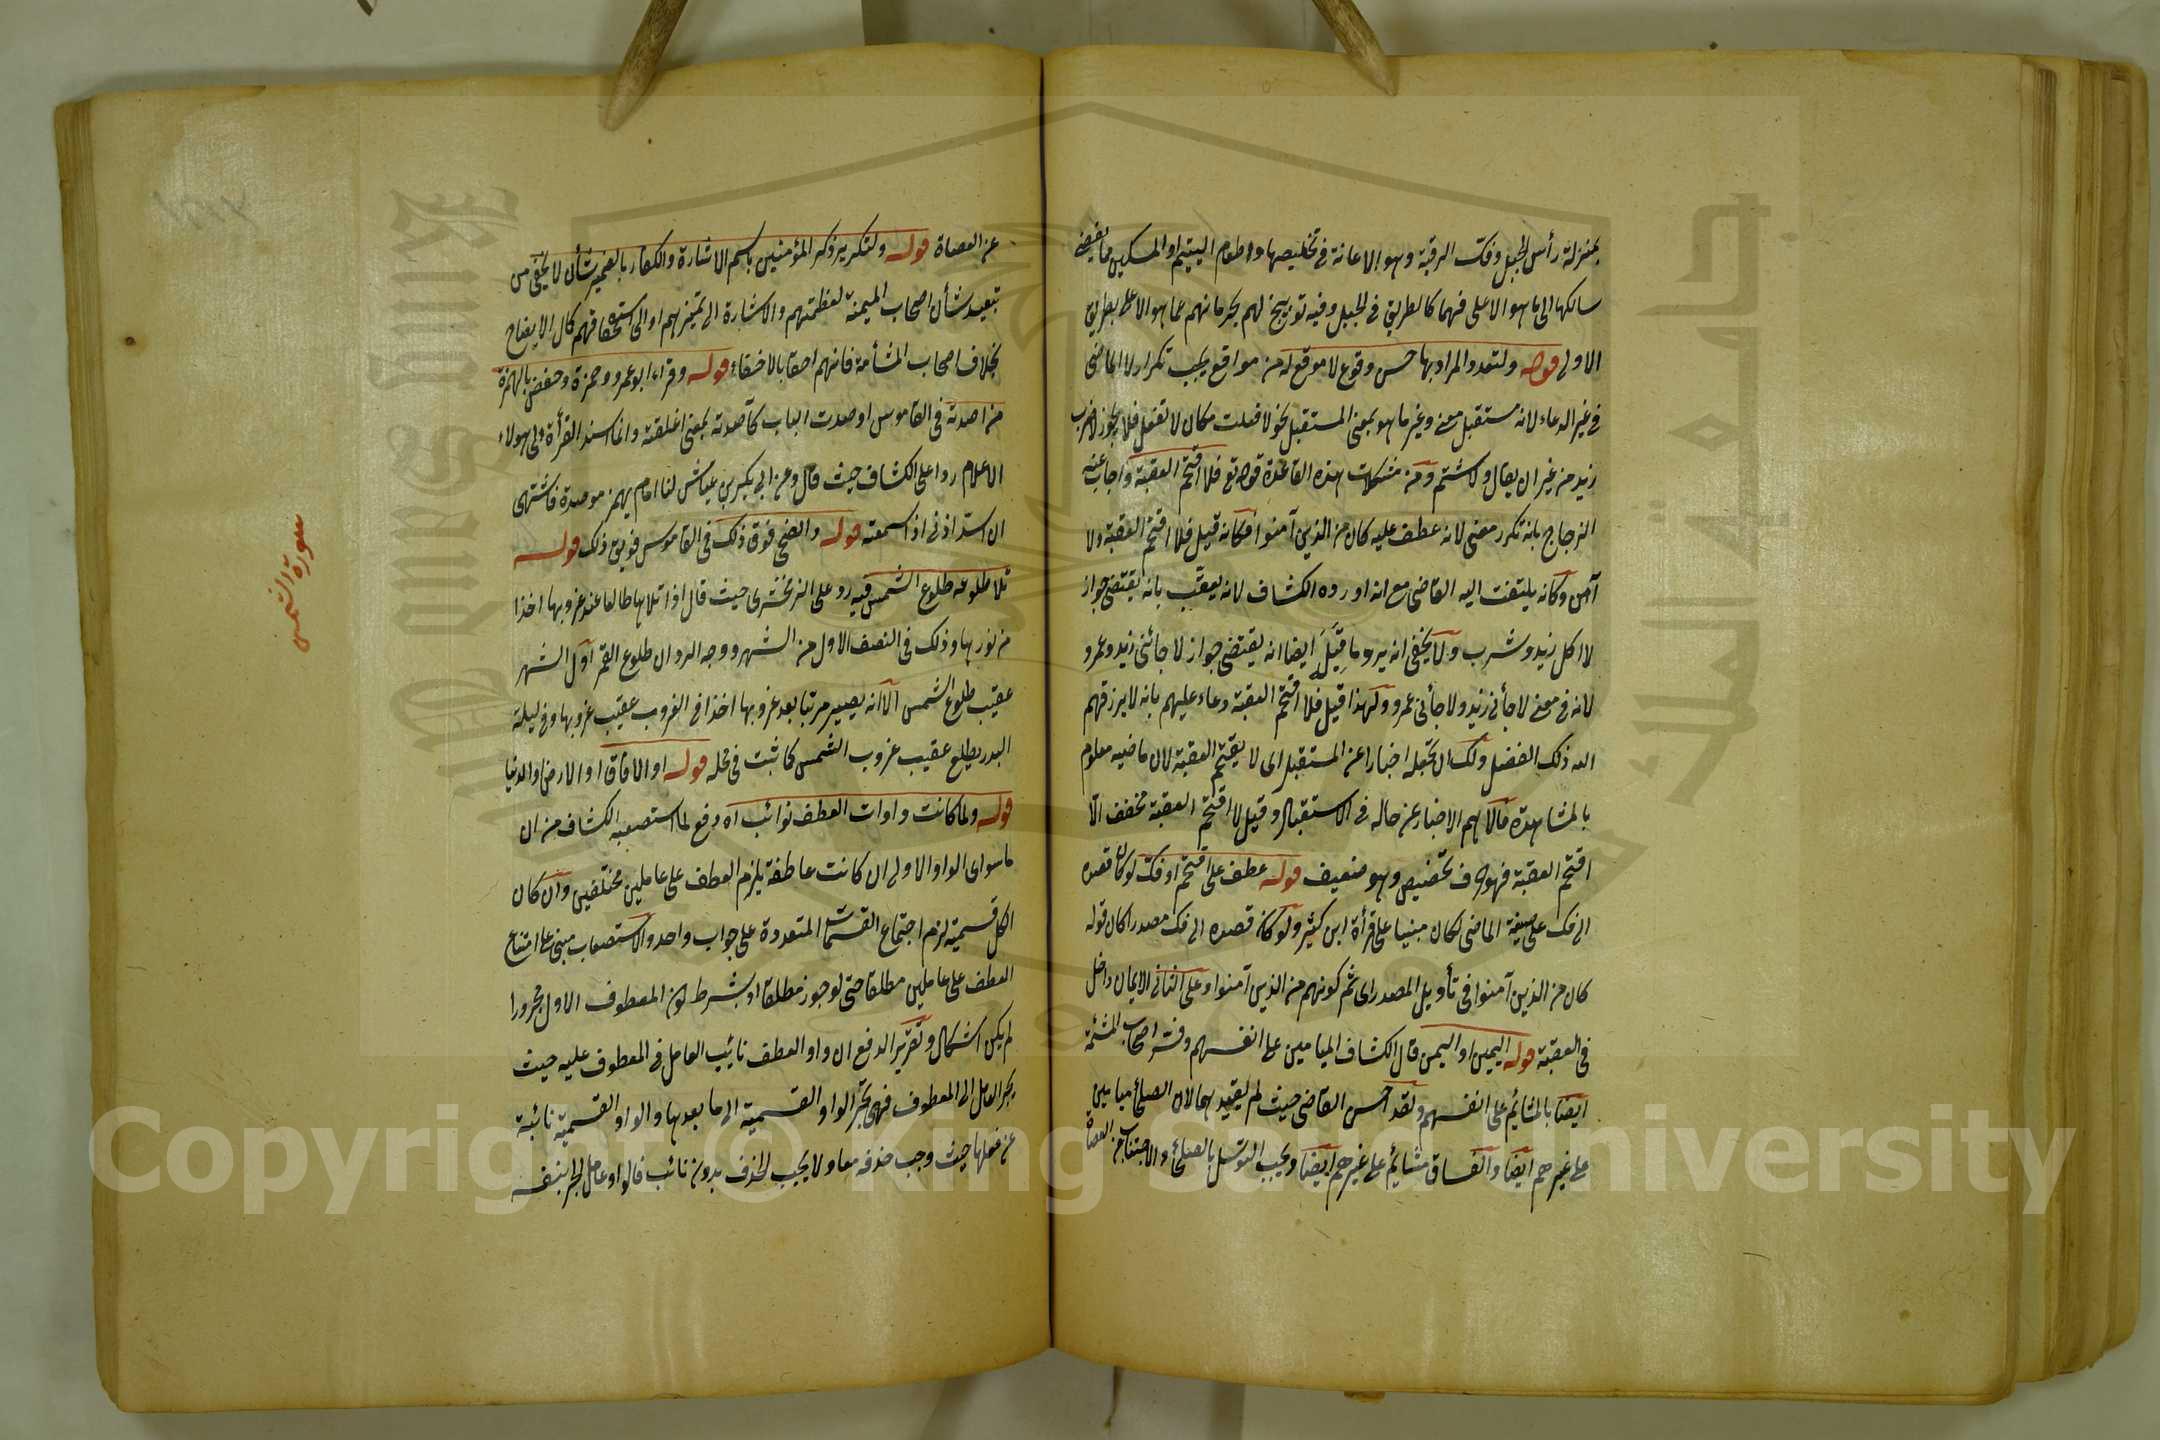 بمنزلة رأس الجبل وفك الرقبة وهو الاعانة في تخليصها واطعام اليتيم او المسكين ما يفيض
سالكها الى ما هو الاعلى فهما كالطريق في الجبل وفيه توبيخ لهم بحرمانهم عما هو الاعلى بطريق
الاولى قوله ولتعدد المراد بها حسن وقوع لا موقع لم من مواقع يجب تكرار لا الماضي
في غير الدعاء لانه مستقبل معنى وغير ما هو بمعنى المستقبل نحو لا فعلت مكان لا تفعل فلا يجوز لا ضرب
زيد من غير ان يقال ولا شتم ومن مشكلات هذه القاعدة قوله تع فلا اقتحم العقبة واجاب عنه
الزجاج بانه تكرر معنى لانه عطف عليه كان من الذين آمنوا فكانه قيل فلا اقتحم العقبة ولا
آمن وكانه يلتفت اليه القاضي مع انه اورده الكشاف لانه يعقب بانه يقتضي جواز
لا اكل زيد وشرب ولا يخفى انه يرد ما قيل ايضا انه يقتضي جواز لا جائني زيد وعمرو
لانه في معنى لا جأني زيد ولا جأني عمرو ولهذا قيل فلا اقتحم العقبة دعاء عليهم بانه لا يرزقهم
الله ذلك الفضل ولك ان تجعله اخبارا عن المستقبل اى لا يقتحم العقبة لان ماضيه معلوم
بالمشاهدة فالاهم الاخبار عن حاله في الاستقبال وقيل لا اقتحم العقبة مخفف الّا
اقتحم العقبة فهو حرف تحضيض وهو ضعيف قوله عطف على اقتحم او فك لو كان قصده
الى فك على صيغة الماضي لكان مبنيا على قرأة ابن كثير ولو كان قصده الى فك مصدرا كان قوله
كان من الذين آمنوا في تأويل المصدر اى ثم كونهم من الذين آمنوا وعلى الثاني الايمان داخل
في العقبة قوله اليمين او اليمن قال الكشاف الميامين على انفسهم وفسر اصحاب المشئمة
ايضا بالمشائيم على انفسهم ولقد احسن القاضي حيث لم يقيد بها لان الصلحاء ميامين
على غيرهم ايضا والفساق مشائيم على غيرهم ايضا ويجب التوسل بالصلحاء والاجتناب عن العصاة
عن العصاة قوله ولتكرير ذكر المؤمنين باسم الاشارة والكفار بالضمير شأن لا يخفى من
تبعيد شأن اصحاب الميمنة لعظمتهم والاشارة الى تميزهم او الى استحقاقهم كمال الايضاح
بخلاف اصحاب المشأمة فانهم احقا بالاخفاء قوله وقرأ ابو عمرو وحمزة وحفص بالهمزة
من اصدته في القاموس اوصدت الباب كآصدته بمعنى اغلقته وانما اسند القرأة الى هولاء
الاعلام ردا على الكشاف حيث قال وعن ابي بكر بن عياش لنا امام يهمز موصدة فاشتهى
ان اسد اذني اذا سمعته قوله والضحى فوق ذلك في القاموس فويق ذلك قوله
تلا طلوعه طلوع الشمس فيه رد على الزمخشرى حيث قال اذا تلاها طالعا عند غروبها اخذا
من نورها وذلك في النصف الاول من الشهر ووجه الرد ان طلوع القمر اول الشهر
عقيب طلوع الشمس الا انه يصير مرتبا بعد غروبها اخذا في الغروب عقيب غروبها وفي ليلة
البدر يطلع عقيب غروب الشمس كما ثبت في محله قوله او الافاق او الارض او الدنيا
قوله ولما كانت واوات العطف نوائب اه دفع لما استصعبه الكشاف من ان
ما سوى الواو الاولى ان كانت عاطفة يلزم العطف على عاملين مختلفين وان كان
الكل قسمية لزم اجتماع القسمات المتعددة على جواب واحد والاستصعاب مبني على امتناع
العطف على عاملين مطلقا حتى لو جوز مطلقا او بشرط كون المعطوف الاول مجرورا
لم يكن اشكال وتقرير الدفع ان واو العطف نائب العامل في المعطوف عليه حيث
يجر العامل الى المعطوف فهي تجر الواو القسمية الى ما بعدها والواو القسمية نائبة
عن فعلها حيث وجب حذفه معا ولا يجب الحذف بدون نائب فالواو عامل الجر بنفسه
سورة الشمس
Copyright © King Saud University